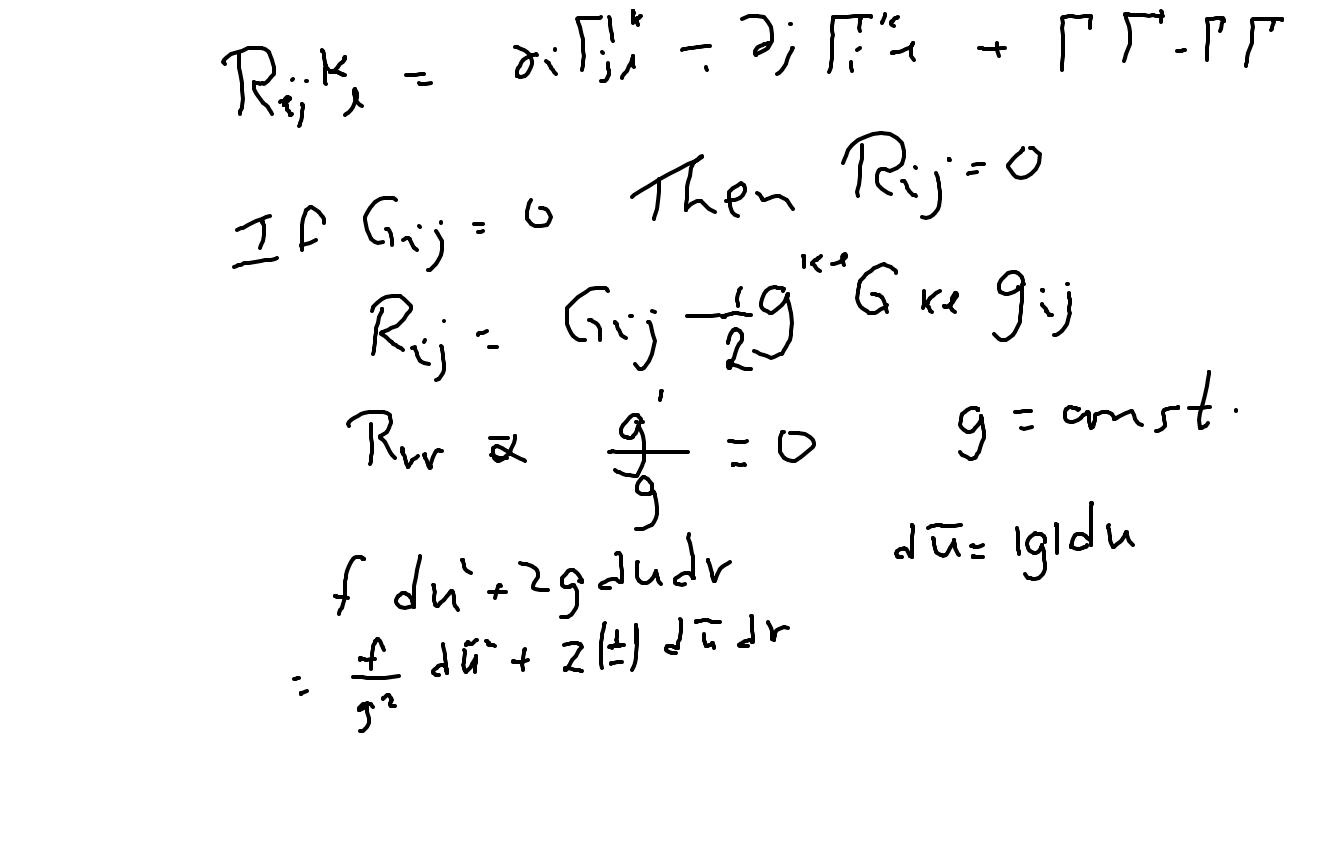 R_{ij}^k_l = ∂_i Γ_{jl}^k - ∂_j Γ_i^k_l + ΓΓ - ΓΓ
If G_{ij} = 0 Then R_{ij} = 0
R_{ij} = G_{ij} - \frac{1}{2} g^{kl} G_{kl} g_{ij}
R_{rr} ∝ \frac{g'}{g} = 0 g = const.
f du² + 2g du dr dū = |g| du
= \frac{f}{g²} dū² + 2(±) dū dr